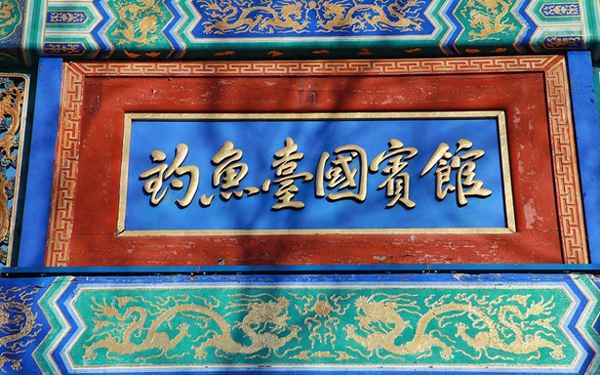 釣魚臺國賓館